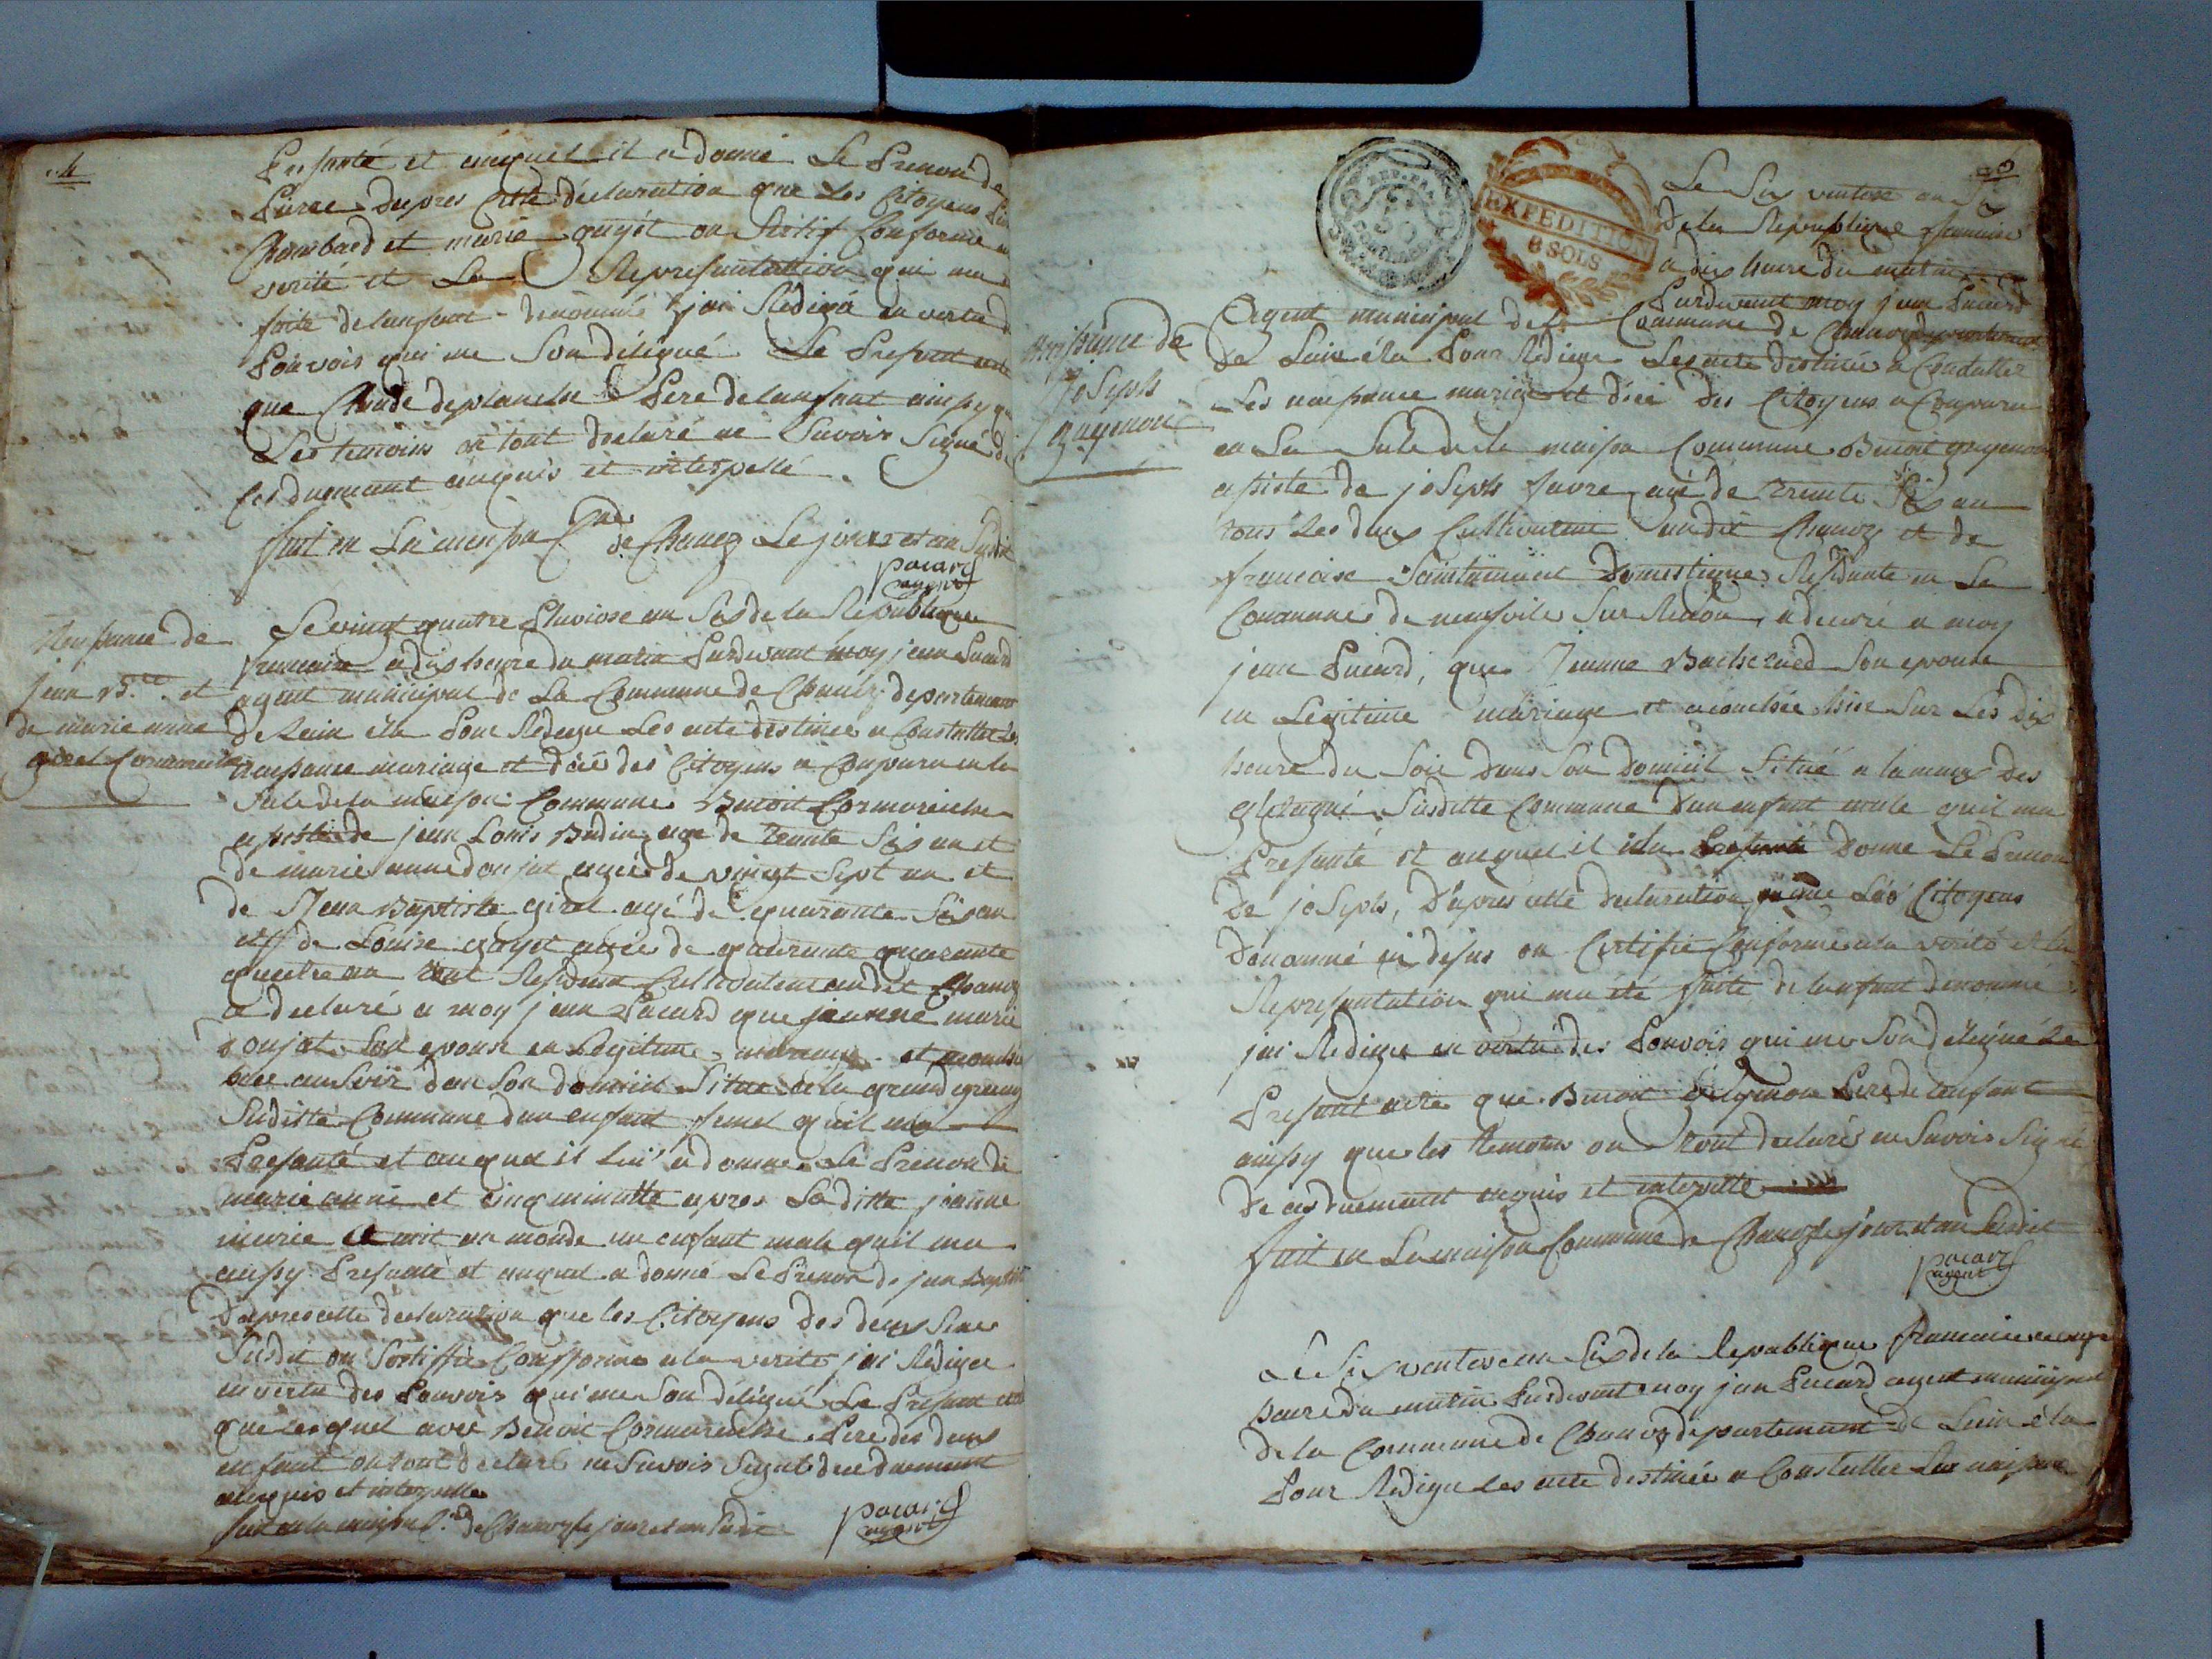 4
Presanté et auquel il a donné Le Prenon de
Pierre Dapres Cette declaration que Les Citoyens
Chambard et marie guyot on Conforme
verité et La Represantation qui ma
faite delanfant denommé jai Redigé en vertu d
Pouvois qui me Son délégué Le Presant acte
que Claude deplanche Pere delanfant ainsy que
Les temoins on tout declaré ne Savoir Signé de
Ces duemant enquis et interpellé
fait en La maison de Chanoz Le jour et an Sudit
pacard
agent
Naissance de
jean B.te et
de marie anne
girel Cormareiche
Le vingt quatre Pluviose an Six de la Republique
francaise a dix heure du matin Pardevant moy jean Pacard
agent municipal de La Commune de Chanoz departement
de Lain élu Pour Rediger Les acte destinée a Constatter Les
naissance mariage et décé des Citoyens a Comparu en la
Sale de la maison Commune Benoit Cormareiche
assisté de jean Louis Budin agé de trante Six an et
de marie anne donjat agée de vingt Sept an et
de Jean Baptiste girel agé de quarante Six an
et de Louise guyot agée de quarante quarante
quatre an tout Residant Cultivateur audit Chanoz
a declaré a moy jean Pacard que jeanne marie
donjat Son epouse en Legitime mariage et acouchée
hiee au Soir dan Son domicil Situé a la grand grang
Suditte Commune dun enfant femel quil ma
Presanté et auquel il Lui a donne Le Prenon de
marie anne et cinq minutte apres La ditte jeanne
marie a mit au monde un enfant male quil ma
aussy Presanté et auquel a donné Le Prenon de jean Baptiste
Dapres cette declaration que les Citoyens des deux Sexe
Susdit on Sertiffié Confforme a la verité jai Rediger
en vertu des Pouvois qui me Son délégué Le Presant acte
que lesquel avec Benoit Cormareiche Pere des deux
enfant on tout declaré ne Savois Signé de ce duemant
enquis et interpellé
fait en la maison C.ne de Chanoz le jour et an Sudit
pacard
agent
REP. FRA.
50
EXPEDITION
8 SOLS
Naissance de
joseph
guyenon
Le Six ventose an Six
de la Republique francaise
a dix heure du matin
Pardevant moy jean Pacard
agent municipal de la Commune de Chanoz departement
de Lain élu Pour Rediger Les acte destinée a Constatter
Les naissance mariage et décé des Citoyens a Comparu
en La Sale de la maison Commune Benoit guyenon
assisté de joseph favre agé de trante Six an
tous Les deux Cultivateur audit Chanoz et de
francoise Domestique Residante en La
Commune de neufville Sur Renon, a declaré a moy
jean Pacard, que Jeanne Bacherard Son epouse
en Legitime mariage et acouchée hier Sur Les dix
heure du Soir dans Son Domicil Situé a lamaz des
Susditte Commune dun enfant male quil ma
Presanté et auquel il Donné Le Prenon
De joseph, Dapres cette declaration que Les Citoyens
denommé cy desus on Certifié Conforme a la verité et la
Represantation qui ma eté faite de lanfant denommé
jai Rediger en vertu des Pouvois qui me Son délégué Le
Presant acte que Benoit guyenon Pere de lenfant
ainsy que les temoins on tout declaré ne Savoir Signé
de ces duemant enquis et interpellé
fait en La maison Commune de Chanoz le jour et an Susdit
pacard
agent
Le Six ventose an Six de la Republique francaise a
heure du matin Pardevant moy jean Pacard agent municipal
de la Commune de Chanoz departement de Lain élu
Pour Rediger Les acte destinée a Constatter Les naissance